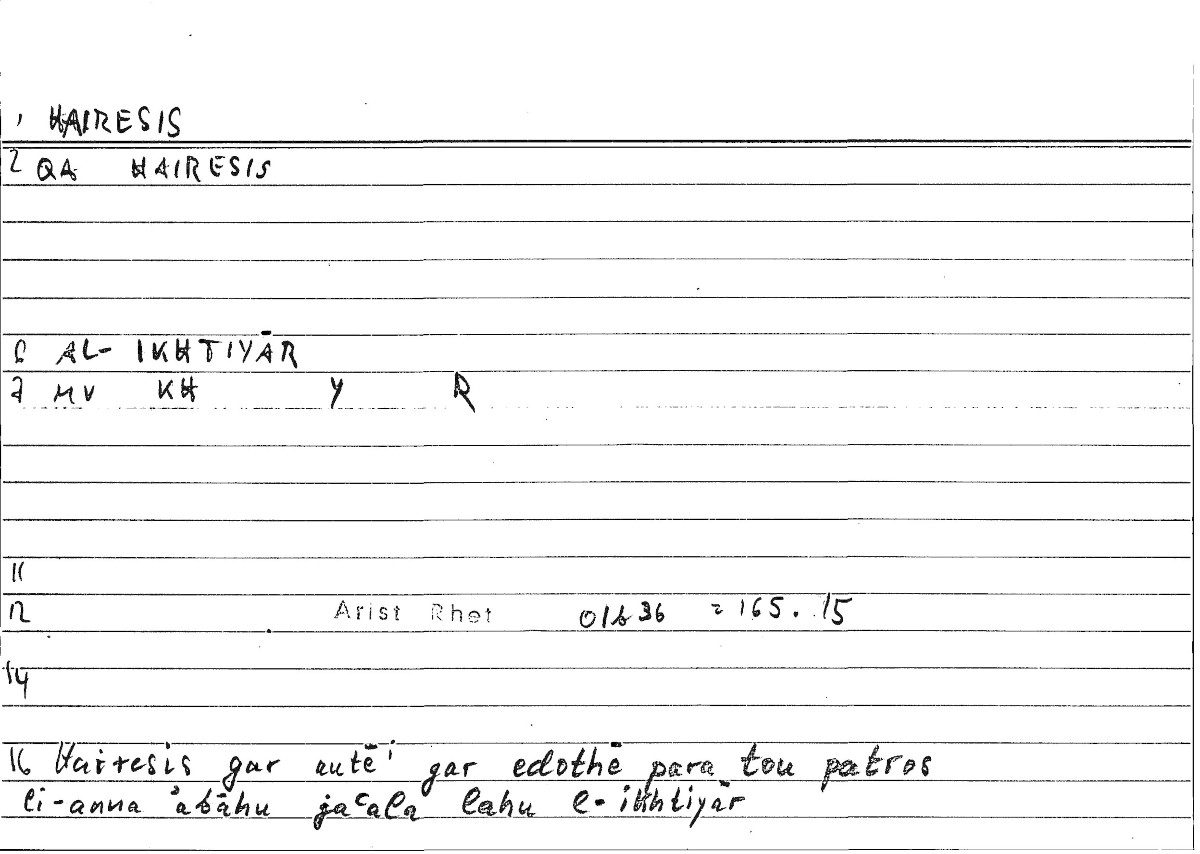 1 HAIRESIS
2 QA HAIRESIS
6 AL- IKHTIYĀR
7 MV KH Y R
11
12 Arist Rhet 01b36 = 165. 15
14
16 Hairesis gar autē' gar edothē para tou patros
li-anna 'abāhu jaʿala lahu l-ikhtiyār